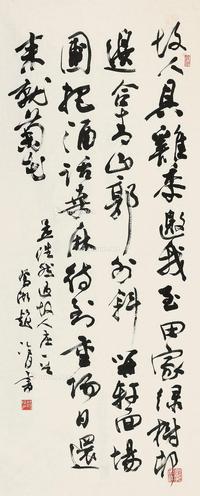 故人具雞黍邀我至田家綠樹邨
邊合青山郭外斜開軒面場
圃把酒話桑麻待到重陽日還
來就菊花
孟浩然過故人庄一首